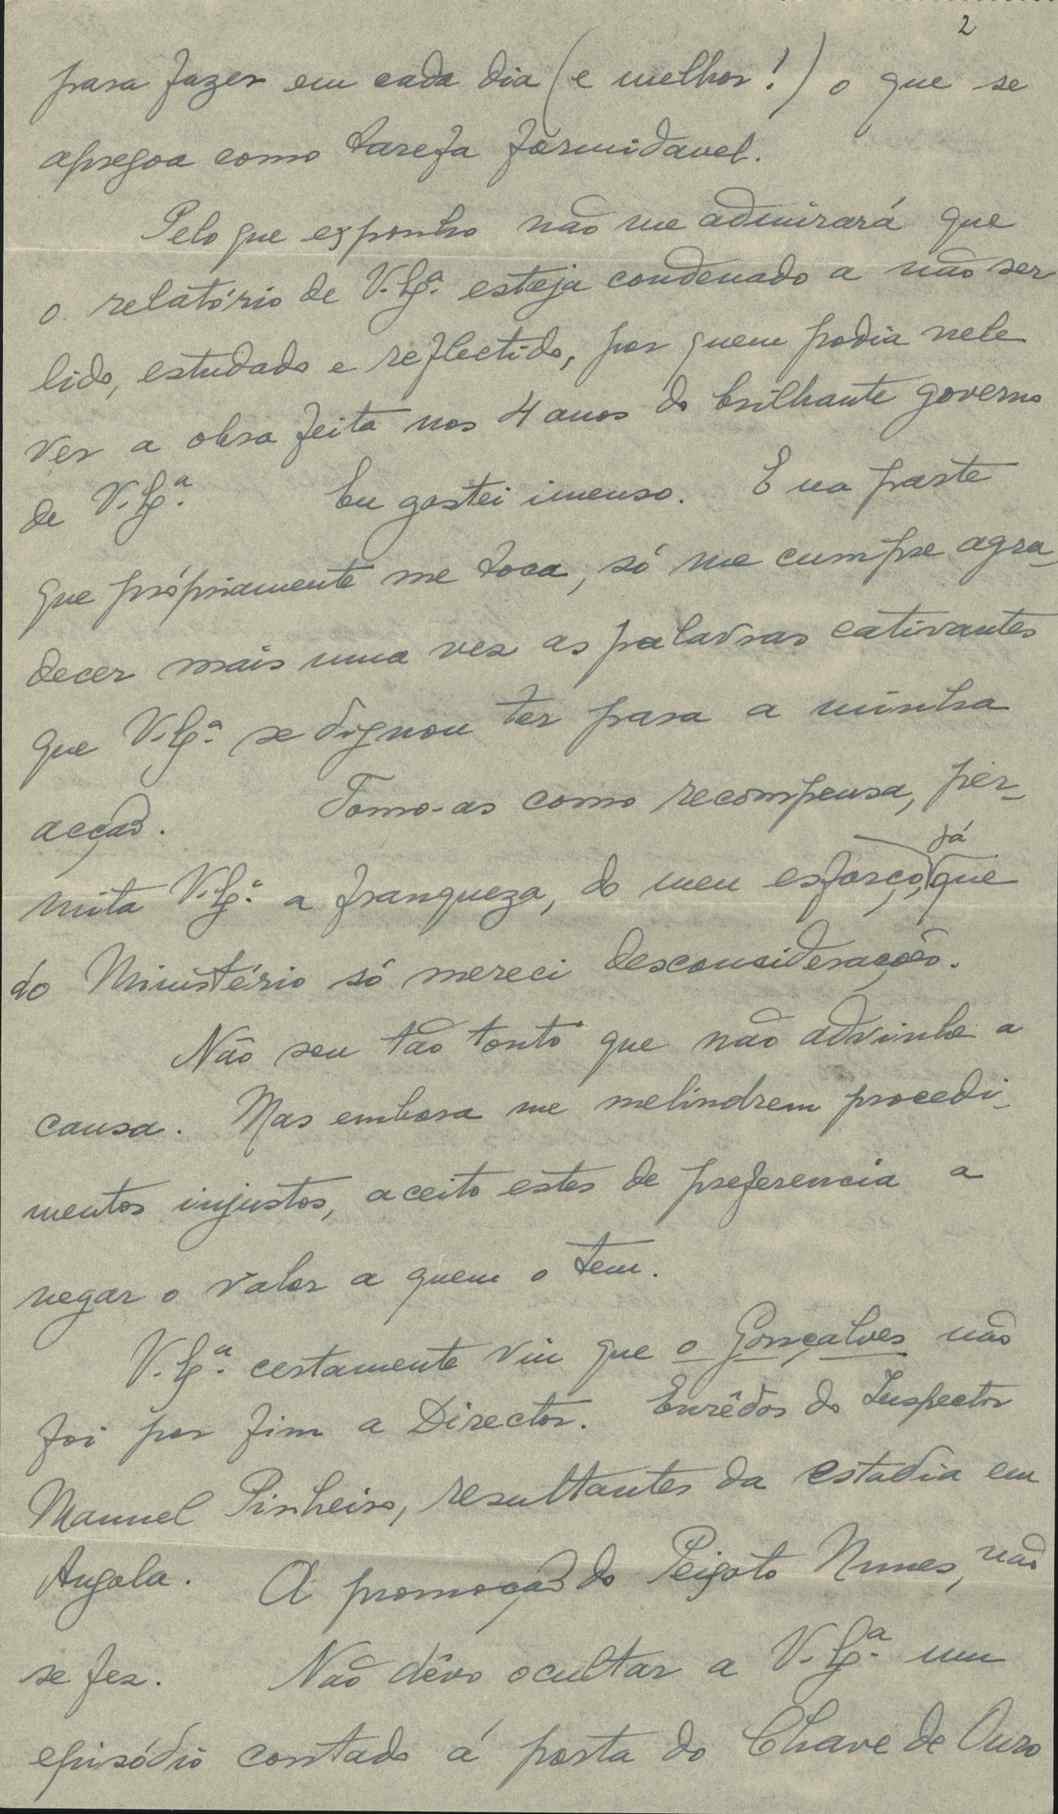 2
para fazer em cada dia (e melhor!) o que se
apregoa como tarefa formidavel.
Pelo que exponho não me admirará que
o relatório de V. Ex.ª esteja condenado a não ser
lido, estudado e reflectido, por quem podia nele
ver a obra feita nos 4 anos do brilhante governo
de V. Ex.ª Eu gostei imenso. E na parte
que própriamente me toca, só me cumpre agra-
decer mais uma vez as palavras cativantes
que V. Ex.ª se dignou ter para a minha
acção. Tomo-as como recompensa, per-
mita V. Ex.ª a franqueza, do meu esforço, já que
do Ministério só mereci desconsiderações.
Não sou tão tonto que não advinhe a
causa. Mas embora me melindrem procedi-
mentos injustos, aceito estes de preferencia a
negar o valor a quem o tem.
V. Ex.ª certamente viu que o Gonçalves não
foi por fim a Director. Enrêdos do Inspector
Manuel Pinheiro, resultantes da estadia em
Angola. A promoção do Peixoto Nunes, não
se fez. Não dêvo ocultar a V. Ex.ª um
episódio contado á porta do Chave de Ouro